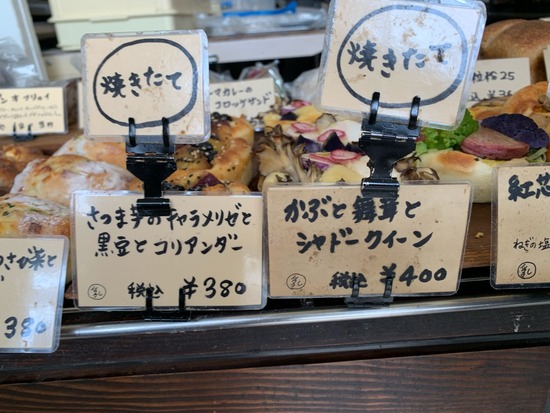 焼きたて
焼きたて
マカレーの
コロッケサンド
さつま芋のキャラメリゼと
黒豆とコリアンダー
乳
税込 ¥380
かぶと舞茸と
シャドークイーン
乳
税込 ¥400
紅芯
ねぎの塩
380